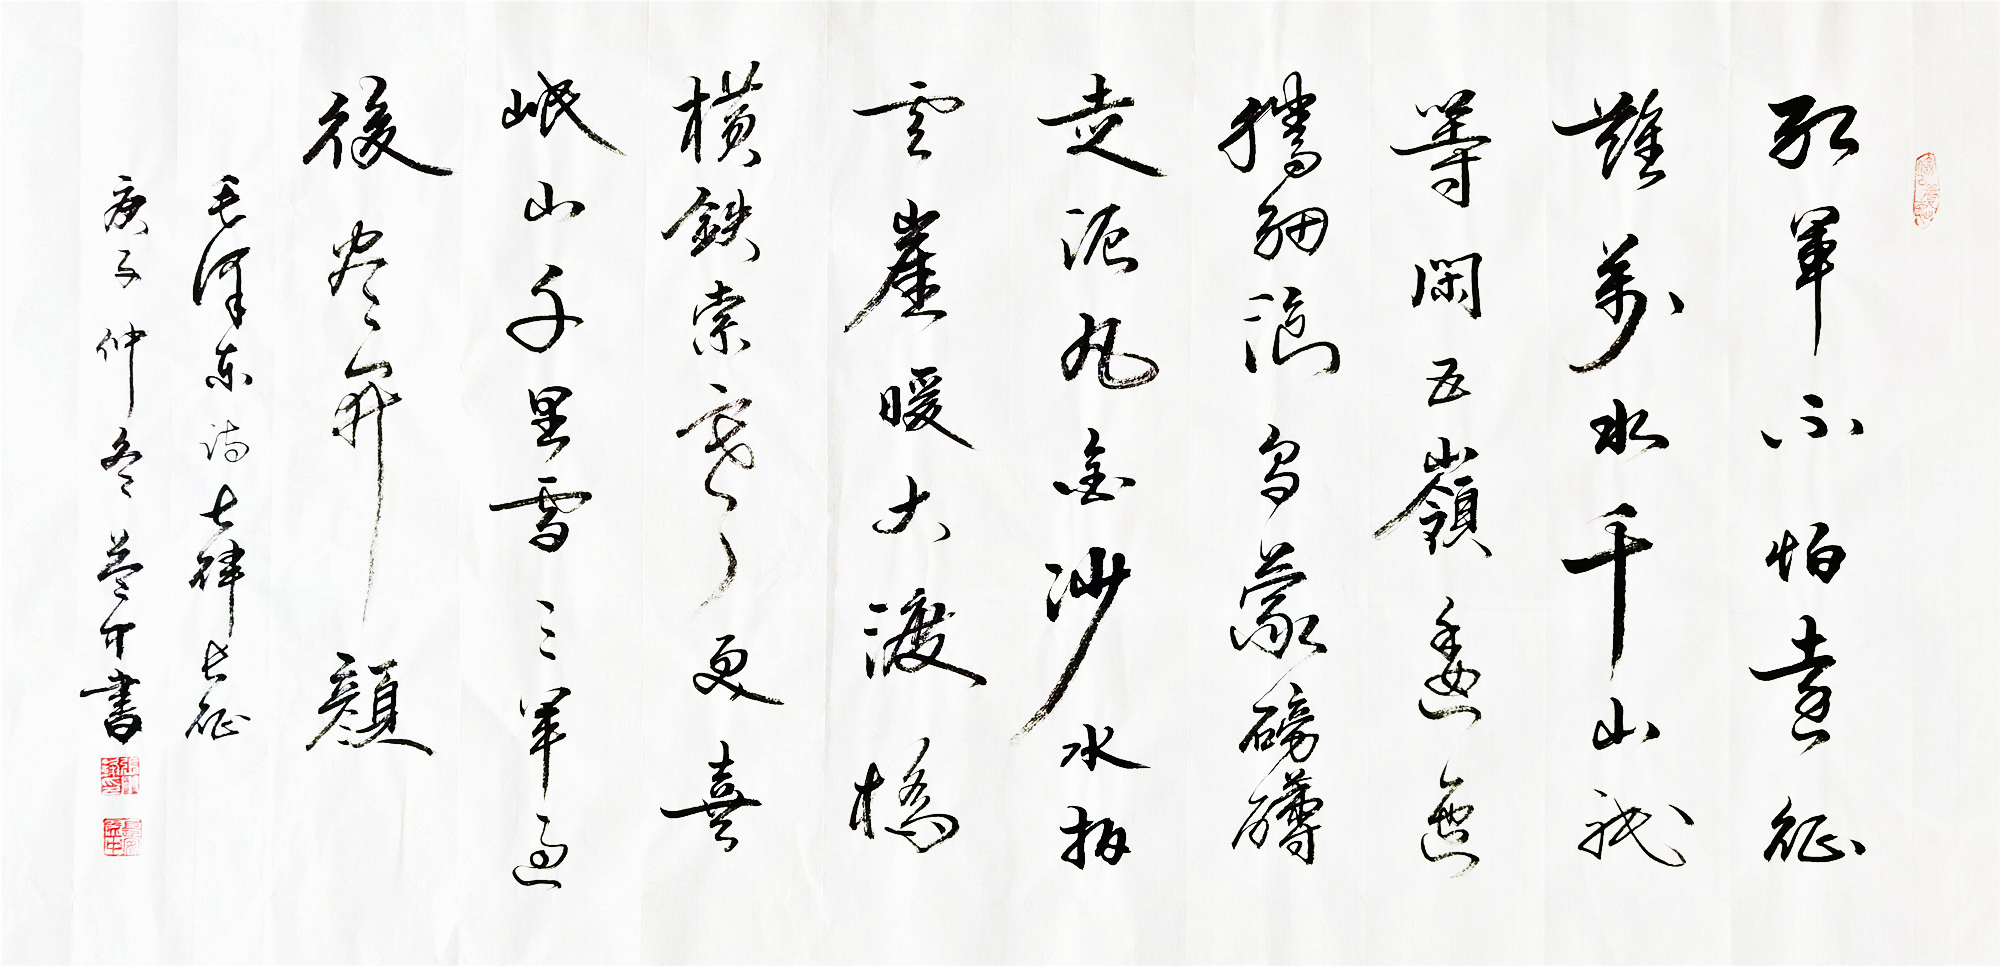 紅軍不怕遠征
難萬水千山祇
等閑五嶺逶迤
騰細浪烏蒙磅礴
走泥丸金沙水拍
雲崖暖大渡橋
橫鉄索寒更喜
岷山千里雪三軍過
後盡開顏
毛澤東詩七律長征
庚子仲冬書